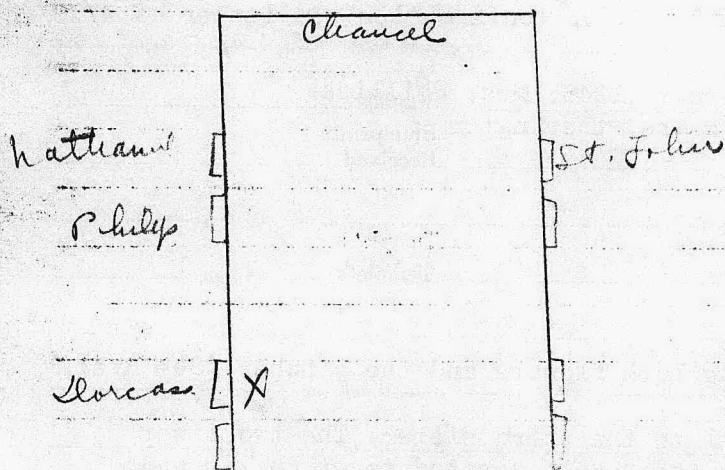 Chancel
Nathaniel St. John
Philip
Dorcas X